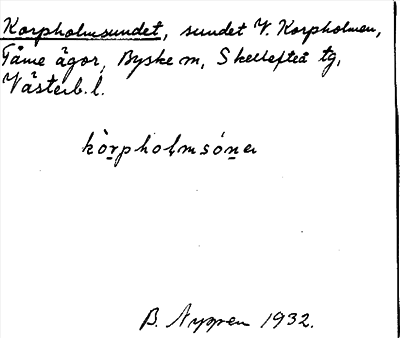 Korpholmsundet, sundet V. Korpholmen,
Tåme ägor, Byske sn, Skellefteå tg,
Västerb. l.
kòrpholmsónǝ
B. Nyppen 1932.